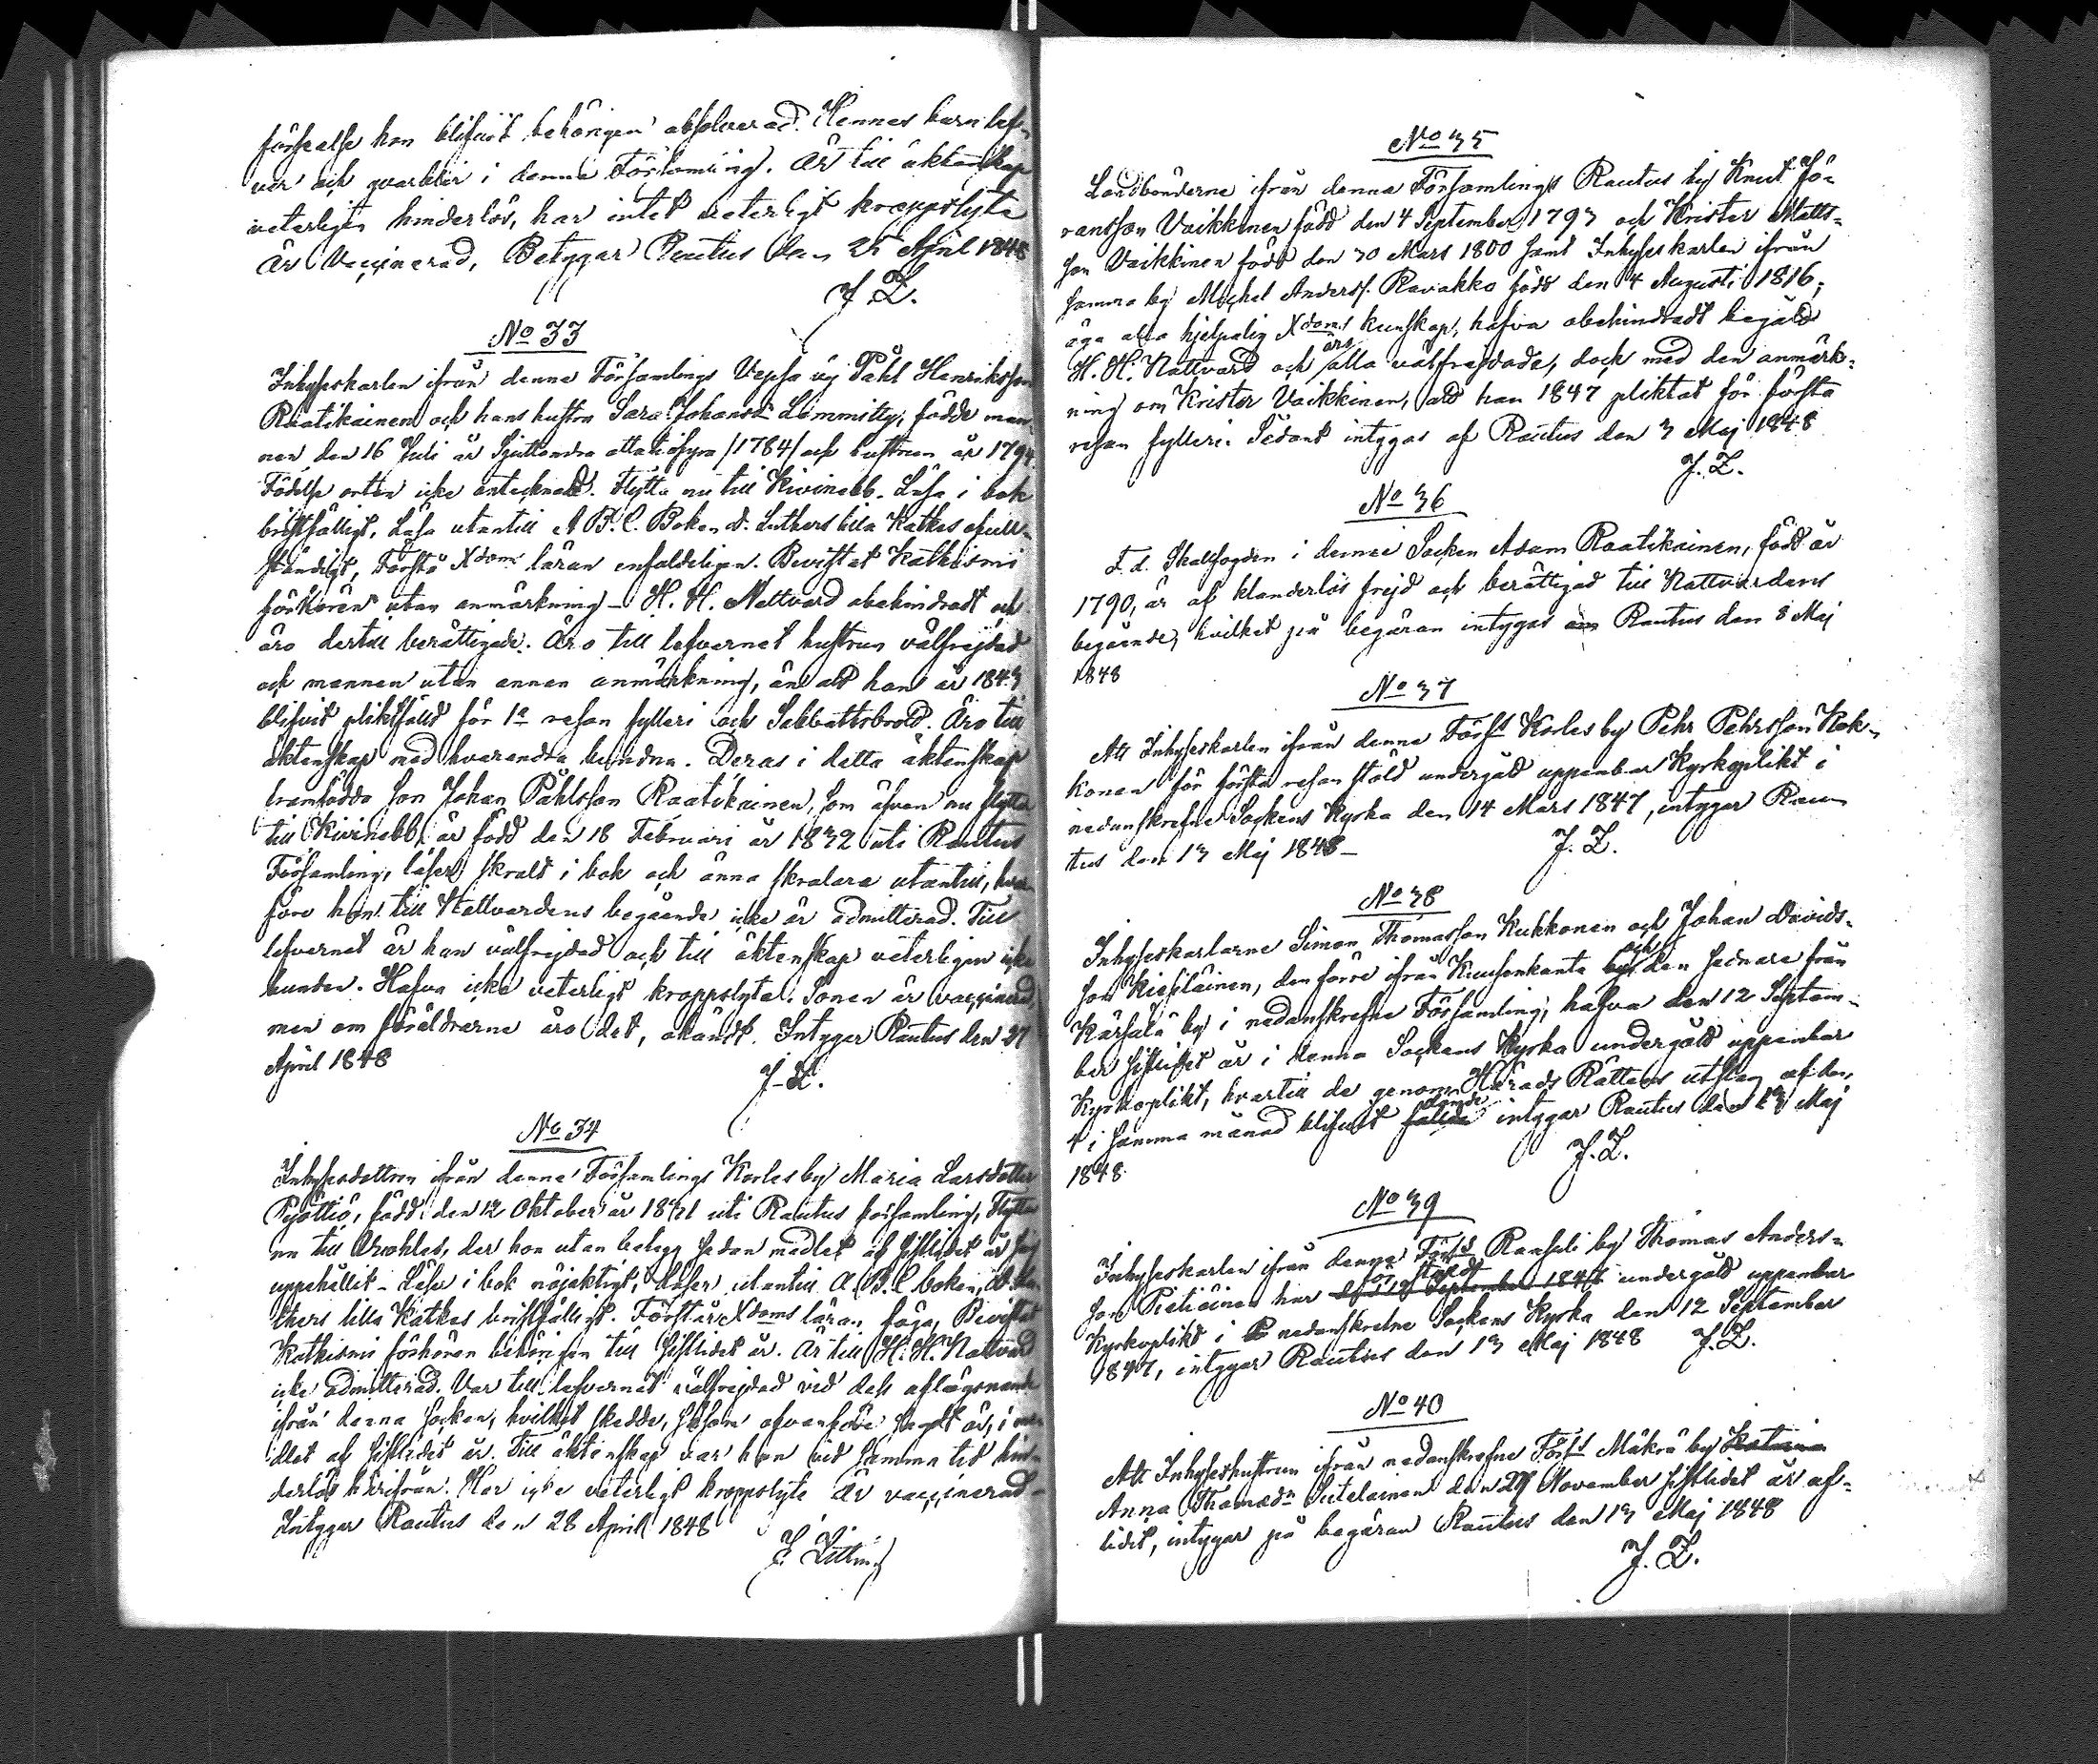 förseelse hon blifvit behörigen absolverad. Hennes barn lef-
ver och qvarblir i denna Församling. Är till äktenskap
veterligen hinderlös, har intet veterligt kroppslyte
Är Vaccinerad, Betygar Rautus den 25 April 1848
J. L.
No 33
Inhyseskarlen ifrån denna Församlings Vepsa by Påhl Henriksson
Raatikainen och hans hustru Sara Johansdr Lommitty, födde man
nen den 16 Juli år Sjuttonde attatiofyra /1784/ och hustrun år 1794
Födelse orten icke antecknad. Flytta nu till Kivinebb. Läsa i bok
bristfälligt, Läsa utantill A B. C. Boken D. Luthers lilla Katkes ofull-
ständigt, Förstå Xdoms läran enfaldeligen. Bevistat Katkismi
förhören utan anmärkning - H. H. Nattvard obehindradt och
äro dertill berättigade. Äro till lefvernet hustrun välfrejdad
och mannen utan annan anmärkning, än att han år 1843
blifvit pliktfälld för 1a resan fylleri och Sabbattsbrott. Äro till
äktenskap med hvarandra bundna. Deras i detta äktenskap
framfödda son Johan Påhlsson Raatikainen, som äfven nu flytta
till Kivinebb, är född den 18 Februari år 1832 uti Rautus
Församling, läser skralt i bok och änna skralare utantill, hvar
före han till Nattvardens begående icke är admitterad. Till
lefvernet är han välfrejdad och till äktenskap veterligen icke
bunden. Hafva icke veterligt kroppslyte. Sonen är vaccinerad,
men om föräldrarne äro det, okändt. Intygar Rautus den 27
April 1848
J. L.
No 34
Inhysesdottren ifrån denna Församlings Korles by Maria Larsdotter
Pyöttiö, född den 12 Oktober år 1821 uti Rautus församling, Flyttar
nu till Walkjärvi, der hon utan betyg sedan medlet af sistlidet år sig
uppehållit - Läser i bok nöjaktigt, Läser utantill A B. C boken, D. Lu
thers lilla Katkes bristfälligt. Förstår Xdoms läran föga, Bevistat
Katkismi förhören behörigen till sistlidet år. Är till H. H. Nattvard
icke admitterad. Var till lefvernet välfrejdad vid dess aflägsnande
ifrån denna socken, hvilket skedde, såsom ofvanföre sagdt är, i me
dlet af sistlidet år. Till äktenskap var hon vid samma tid hin-
derlös härifrån. Har icke veterligt kroppslyte Är vaccinerad -
Intygar Rautus den 28 April 1848
J. Litting
No 35
Landbönderne ifrån denna Församlings Rautus by Knut Jö-
ransson Vaikkinen född den 4 September 1793 och Krister Matts-
son Vaikkinen född den 30 Mars 1800 samt Inhyseskarlen ifrån
samma by Mickel Anderss. Ravakko född den 4 Augusti 1816,
äga alla hjelpelig Xdoms kunskap, hafva obehindradt begått
H. H. Nattvard och äro alla välfrejdade, dock med den anmärk-
ning om Krister Vaikkinen, att han 1847 pliktat för första
resan fylleri. Sådant intygas af Rautus den 3 Maj 1848
J. L.
No 36
F. d. Skallfogden i denna Socken Adam Raatikainen, född år
1790, är af klanderlös frejd och berättigad till Nattvardens
begående, hvilket på begäran intygas Rautus den 8 Maj
1848
No 37
Att Inhyseskarlen ifrån denna Förs:s Korles by Pehr Pehrsson Kok-
konen för första resan stöld undergått uppenbar Kyrkoplikt i
nedanskrefne Sockens Kyrka den 14 Mars 1847, intygar Rau-
tus den 13 Maj 1848 -
J. L.
No 38
Inhyseskarlarne Simon Thomasson Kukkonen och Johan Davids-
son Kiesiläinen, den förre ifrån Kuusenkanta och den sednare från
Kärsälä by i nedanskrefne Församling, hafva den 12 Septem-
ber sistlidet år i denna Sockens Kyrka undergått uppenbar
Kyrkoplikt, hvartill de genom Härads Rättens utslag af den
4 i samma månad blifvit dömde intygar Rautus den 13 Maj
1848
J. L.
No 39
Inhyseskarlen ifrån denna Förs:s Raasuli by Thomas Anders-
son Pietiäinen har för stöld undergått uppenbar
Kyrkoplikt i nedanskrefne Sockens Kyrka den 12 September
1847, intygar Rautus den 13 Maj 1848 J. L.
No 40
Att Inhyseshustrun ifrån nedanskrefne Förs:s Mäkrä by Katarina
Anna Thomædr Sutelainen den 29 November sistlidet år af-
lidit, intygar på begäran Rautus den 13 Maj 1848
J. L.